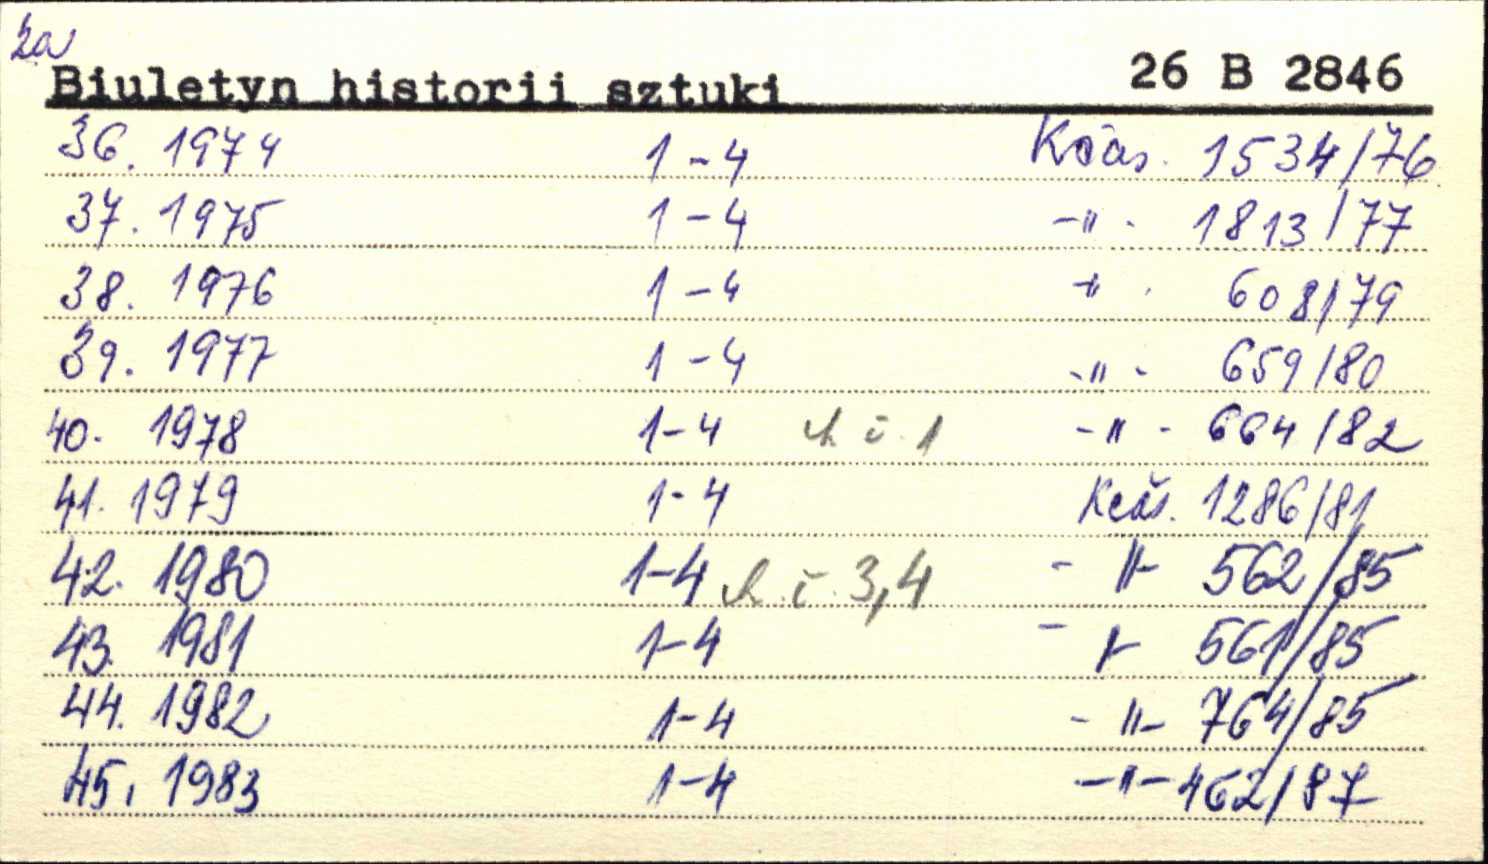 2a
Biuletyn historii sztuki 26 B 2846
36. 1974 1-4 Kčás. 1534/76
37. 1975 1-4 -"- 1813/77
38. 1976 1-4 -"- 608/79
39. 1977 1-4 -"- 659/80
40. 1978 1-4 ch. č. 1 -"- 664/82
41. 1979 1-4 Kčás. 1286/81
42. 1980 1-4 ch. č. 3,4 -"- 562/85
43. 1981 1-4 -"- 561/85
44. 1982 1-4 -"- 764/85
45. 1983 1-4 -"- 462/87